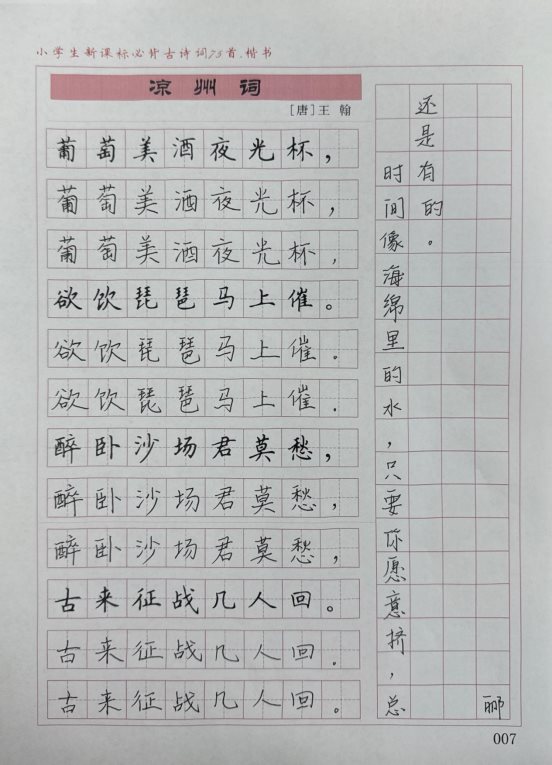 小学生新课标必背古诗词75首.楷书
凉州词
[唐]王 翰
葡萄美酒夜光杯，
葡萄美酒夜光杯，
葡萄美酒夜光杯，
欲饮琵琶马上催。
欲饮琵琶马上催.
欲饮琵琶马上催.
醉卧沙场君莫愁，
醉卧沙场君莫愁，
醉卧沙场君莫愁，
古来征战几人回。
古来征战几人回.
古来征战几人回。
时间像海绵里的水，只要你愿意挤，总
还是有的。
郦
007